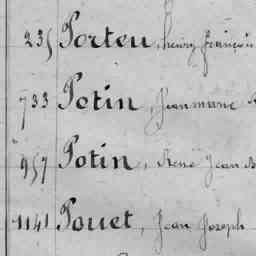 235 Porteu, henry françois
733 Petin, Jean marie
957 Potin, René Jean B
1141 Pouet, Jean Joseph